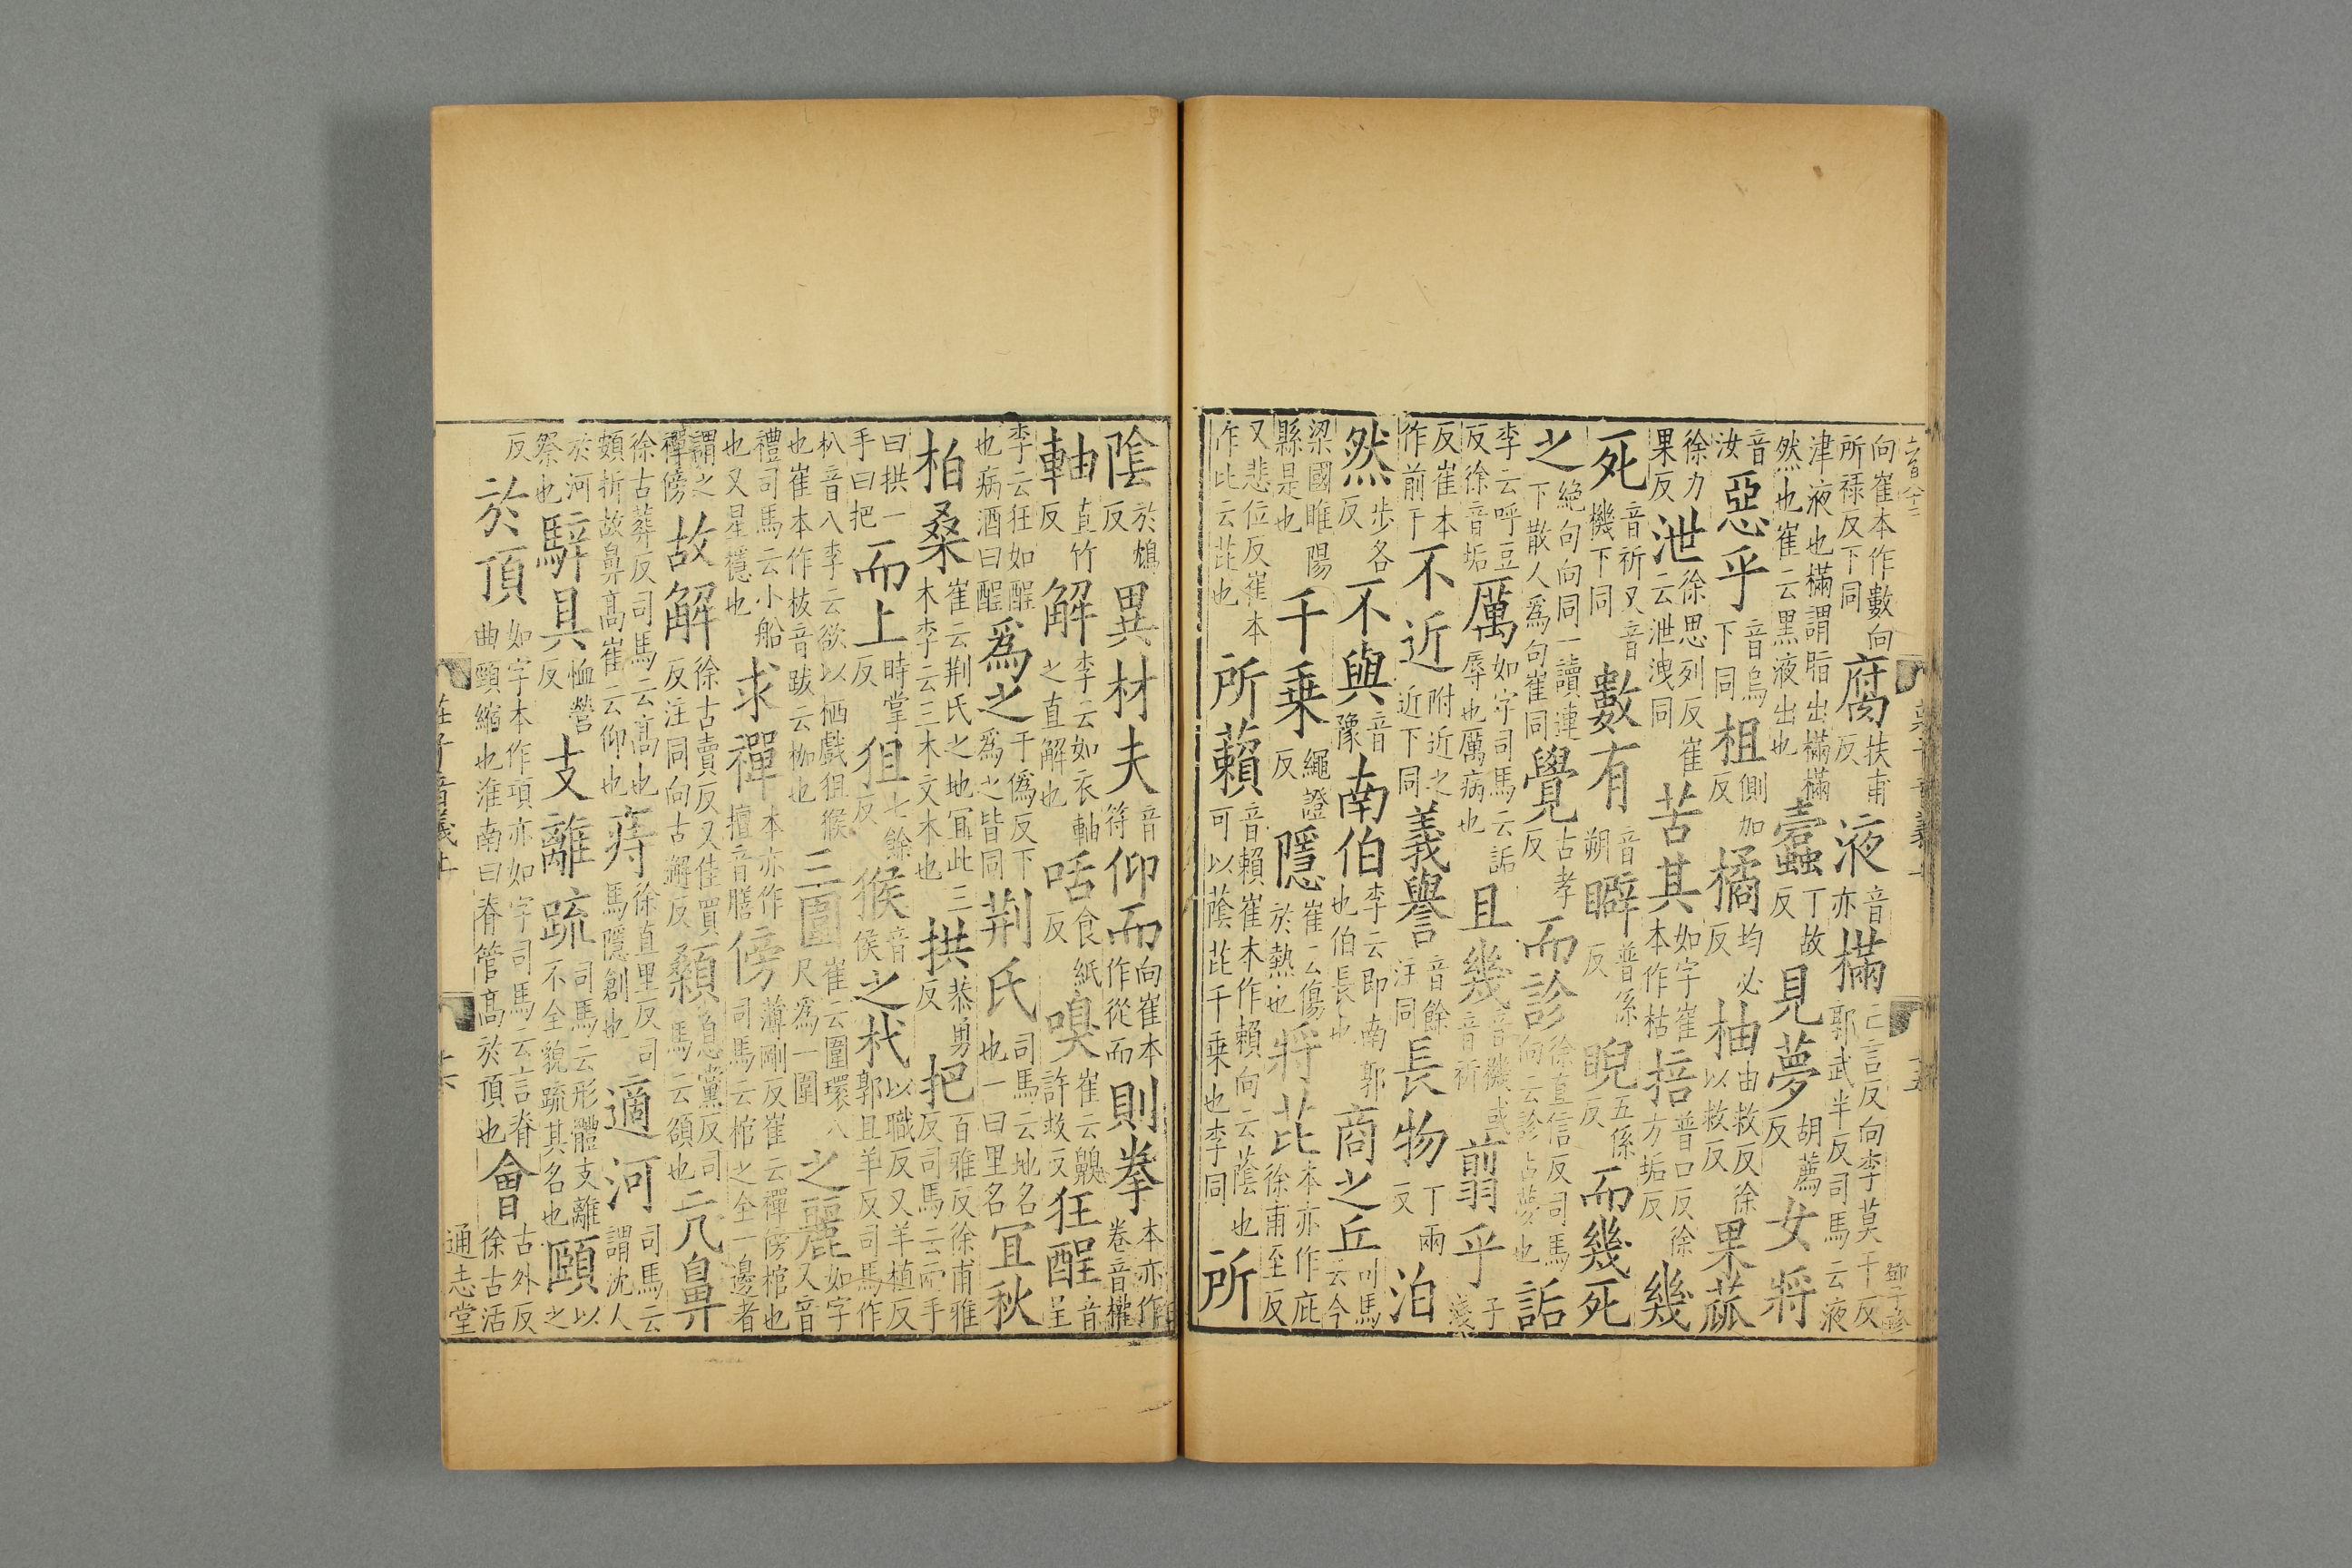 向崔本作數向所祿反下同腐扶甫反液音亦樠亡言反向李莫干反郭武半反司馬云液
津液也樠謂脂出樠樠然也崔云黑液出也蠹丁故反見夢胡薦反女將
音汝惡乎音烏下同柤側加反橘均必反柚由救反徐以救反果蓏
徐力果反泄徐思列反崔云泄洩同苦其如字崔本作枯掊普口反徐方垢反幾
死音祈又音機下同數有音朔睥普係反睨五係反而幾死
之絶句向同一讀連下散人爲句崔同覺古孝反而診徐直信反司馬向云診占夢也詬
李云呼豆反徐音垢厲如字司馬云詬辱也厲病也且幾音機或音祈翦乎子淺
反崔本作前于不近附近之近下同義譽音餘注同長物丁兩反泊
然步各反不與音豫南伯李云即南郭也伯長也商之丘司馬云今
梁國睢陽縣是也千乗繩證反隱崔云傷於熱也將芘本亦作庇徐甫至反
又悲位反崔本作比云芘也所藾音賴崔本作賴向云蔭也可以蔭芘千乗也李同所
陰於鴆反異材夫音符仰而向崔本作從而則拳本亦作卷音權
軸直竹反解李云如衣軸之直解也咶食紙反嗅崔云齅許救反狂酲音呈
李云狂如酲也病酒曰酲爲之于僞反下爲之皆同荆氏司馬云地名也一曰里名冝秋
柏桑崔云荆氏之地冝此三木李云三木文木也拱恭勇反把百雅反徐甫雅反司馬云兩手
曰拱一手曰把而上時掌反狙七餘反猴音侯之杙以職反又羊植反郭且羊反司馬作
朳音八李云欲以栖戲狙猴也崔本作柭音跋云枷也三圍崔云圍環八尺爲一圍之麗如字又音
禮司馬云小船也又星穩也求禪本亦作擅音膳傍薄剛反崔云禪傍棺也司馬云棺之全一邊者
謂之禪傍故解徐古賣反又佳買反注同向古邂反顙息黨反司馬云頟也亢鼻
徐古葬反司馬云高也頞折故鼻高崔云仰也痔徐直里反司馬隱創也適河司馬云謂沈人
於河祭也騂具恤營反支離疏司馬云形體支離不全貌疏其名也頤以之
反於頂如字本作項亦如字司馬云言脊曲頸縮也淮南曰脊管高於頂也會古外反徐古活
莊子音義上
通志堂